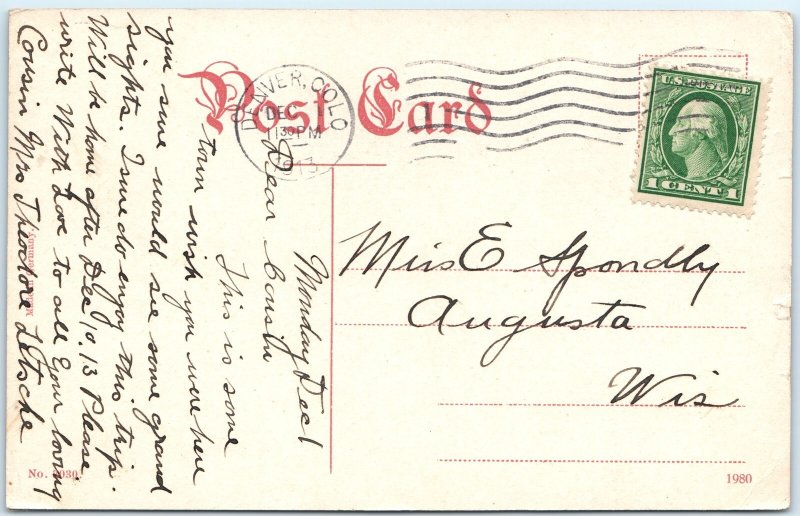 Post Card
DENVER, COLO
DEC
1130PM
1913
U.S. POSTAGE
1 CENT 1
Monday Dec 1
Dear Cousin
This is some
town wish you were here
you sure would see some grand
sights. I sure do enjoy this trip.
Will be home after Dec 10. 13 Please
write With Love to all & your loving
Cousin Mrs Theodore Letsche
Miss E Spondly
Augusta
Wis
Germany.
No.
1980